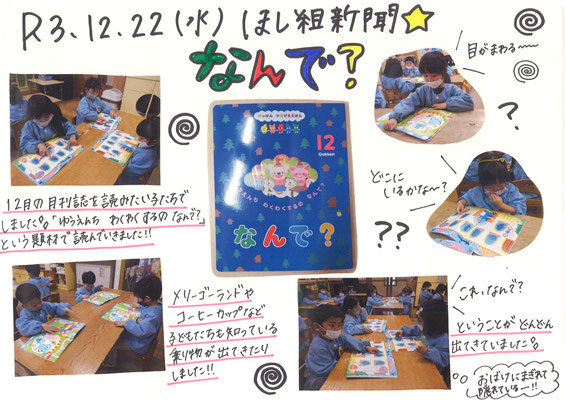 R3.12.22(水) ほし組新聞☆
なんで?
目がまわる〜〜
?
どこに
いるかな〜?
??
12
Gakken
わくわくするの なんで?
なんで?
12月の月刊誌を読みたいたちで
しました。「ゆうえんち わくわくするの なんで?」
という題材で読んでいきました!!
メリーゴーランドや
コーヒーカップなど
子どもたちも知っている
乗り物が出てきたり
しました!!
これ、なんで?
ということがどんどん
出てきていました。
おばけにまぎれて
隠れている〜!!